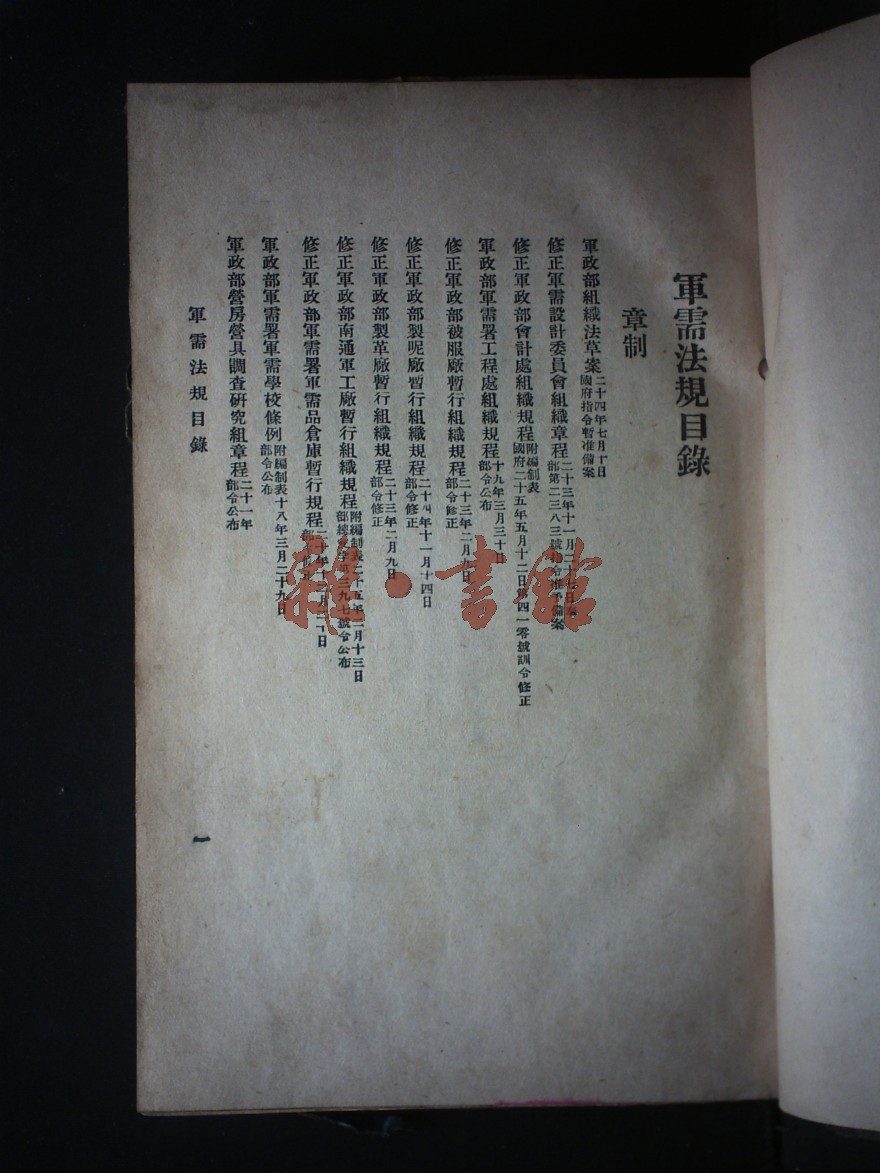 軍需法規目錄
章制
軍政部組織法草案 二十四年七月十日 國府指令暫准備案
修正軍需設計委員會組織章程 二十三年十一月二十七日 部第二三八三號指令准予備案
修正軍政部會計處組織規程 附編制表 國府二十五年五月十二日第四一零號訓令修正
軍政部軍需署工程處組織規程 十九年三月三十日 部令公布
修正軍政部被服廠暫行組織規程 二十三年二月九日 部令修正
修正軍政部製呢廠暫行組織規程 二十四年十一月十四日 部令修正
修正軍政部製革廠暫行組織規程 二十三年二月九日 部令修正
修正軍政部南通軍工廠暫行組織規程 附編制表二十五年二月十三日 部總字第三九七號令公布
修正軍政部軍需署軍需品倉庫暫行規程
軍政部軍需署軍需學校條例 附編制表十八年三月二十九日 部令公布
軍政部營房營具調查研究組章程 二十一年 部令公布
軍需法規目錄
一
雜·書館